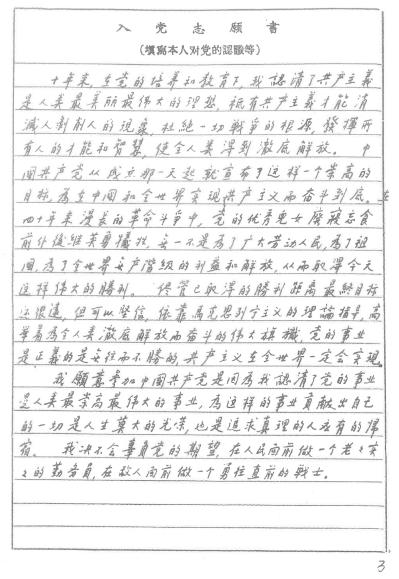 入党志願書
(填寫本人对党的認識等)
十年来,在党的培养和教育下,我認清了共产主義
是人类最美丽最伟大的理想,祗有共产主義才能消
滅人剥削人的現象,杜絕一切戰爭的根源,發揮所
有人的才能和智慧,使全人类得到澈底解放。 中
国共产党从成立那一天起就宣布了这样一个崇高的
目标,為在中國和全世界实现共产主义而奋斗到底。在
四十年来漫長的革命斗爭中,党的优秀兒女廢寢忘食
前仆後継英勇犧牲,無一不是為了廣大劳动人民,為了祖
國,為了全世界無产階級的利益和解放,从而取得今天
这样伟大的勝利。 儘管已取得的勝利距离最終目标
还很遠,但可以堅信,依靠馬克思列宁主义的理論指導,高
举着為全人类澈底解放而奋斗的伟大旗幟,党的事业
是正義的是無往而不勝的,共产主义在全世界一定会实现。
我願意參加中國共产党是因為我認清了党的事业
是人类最崇高最伟大的事业,為这样的事业貢献出自己
的一切是人生莫大的光荣,也是追求真理的人应有的歸
宿。 我决不会辜負党的期望,在人民面前做一个老々实
々的勤务員,在敌人面前做一个勇往直前的战士。
3